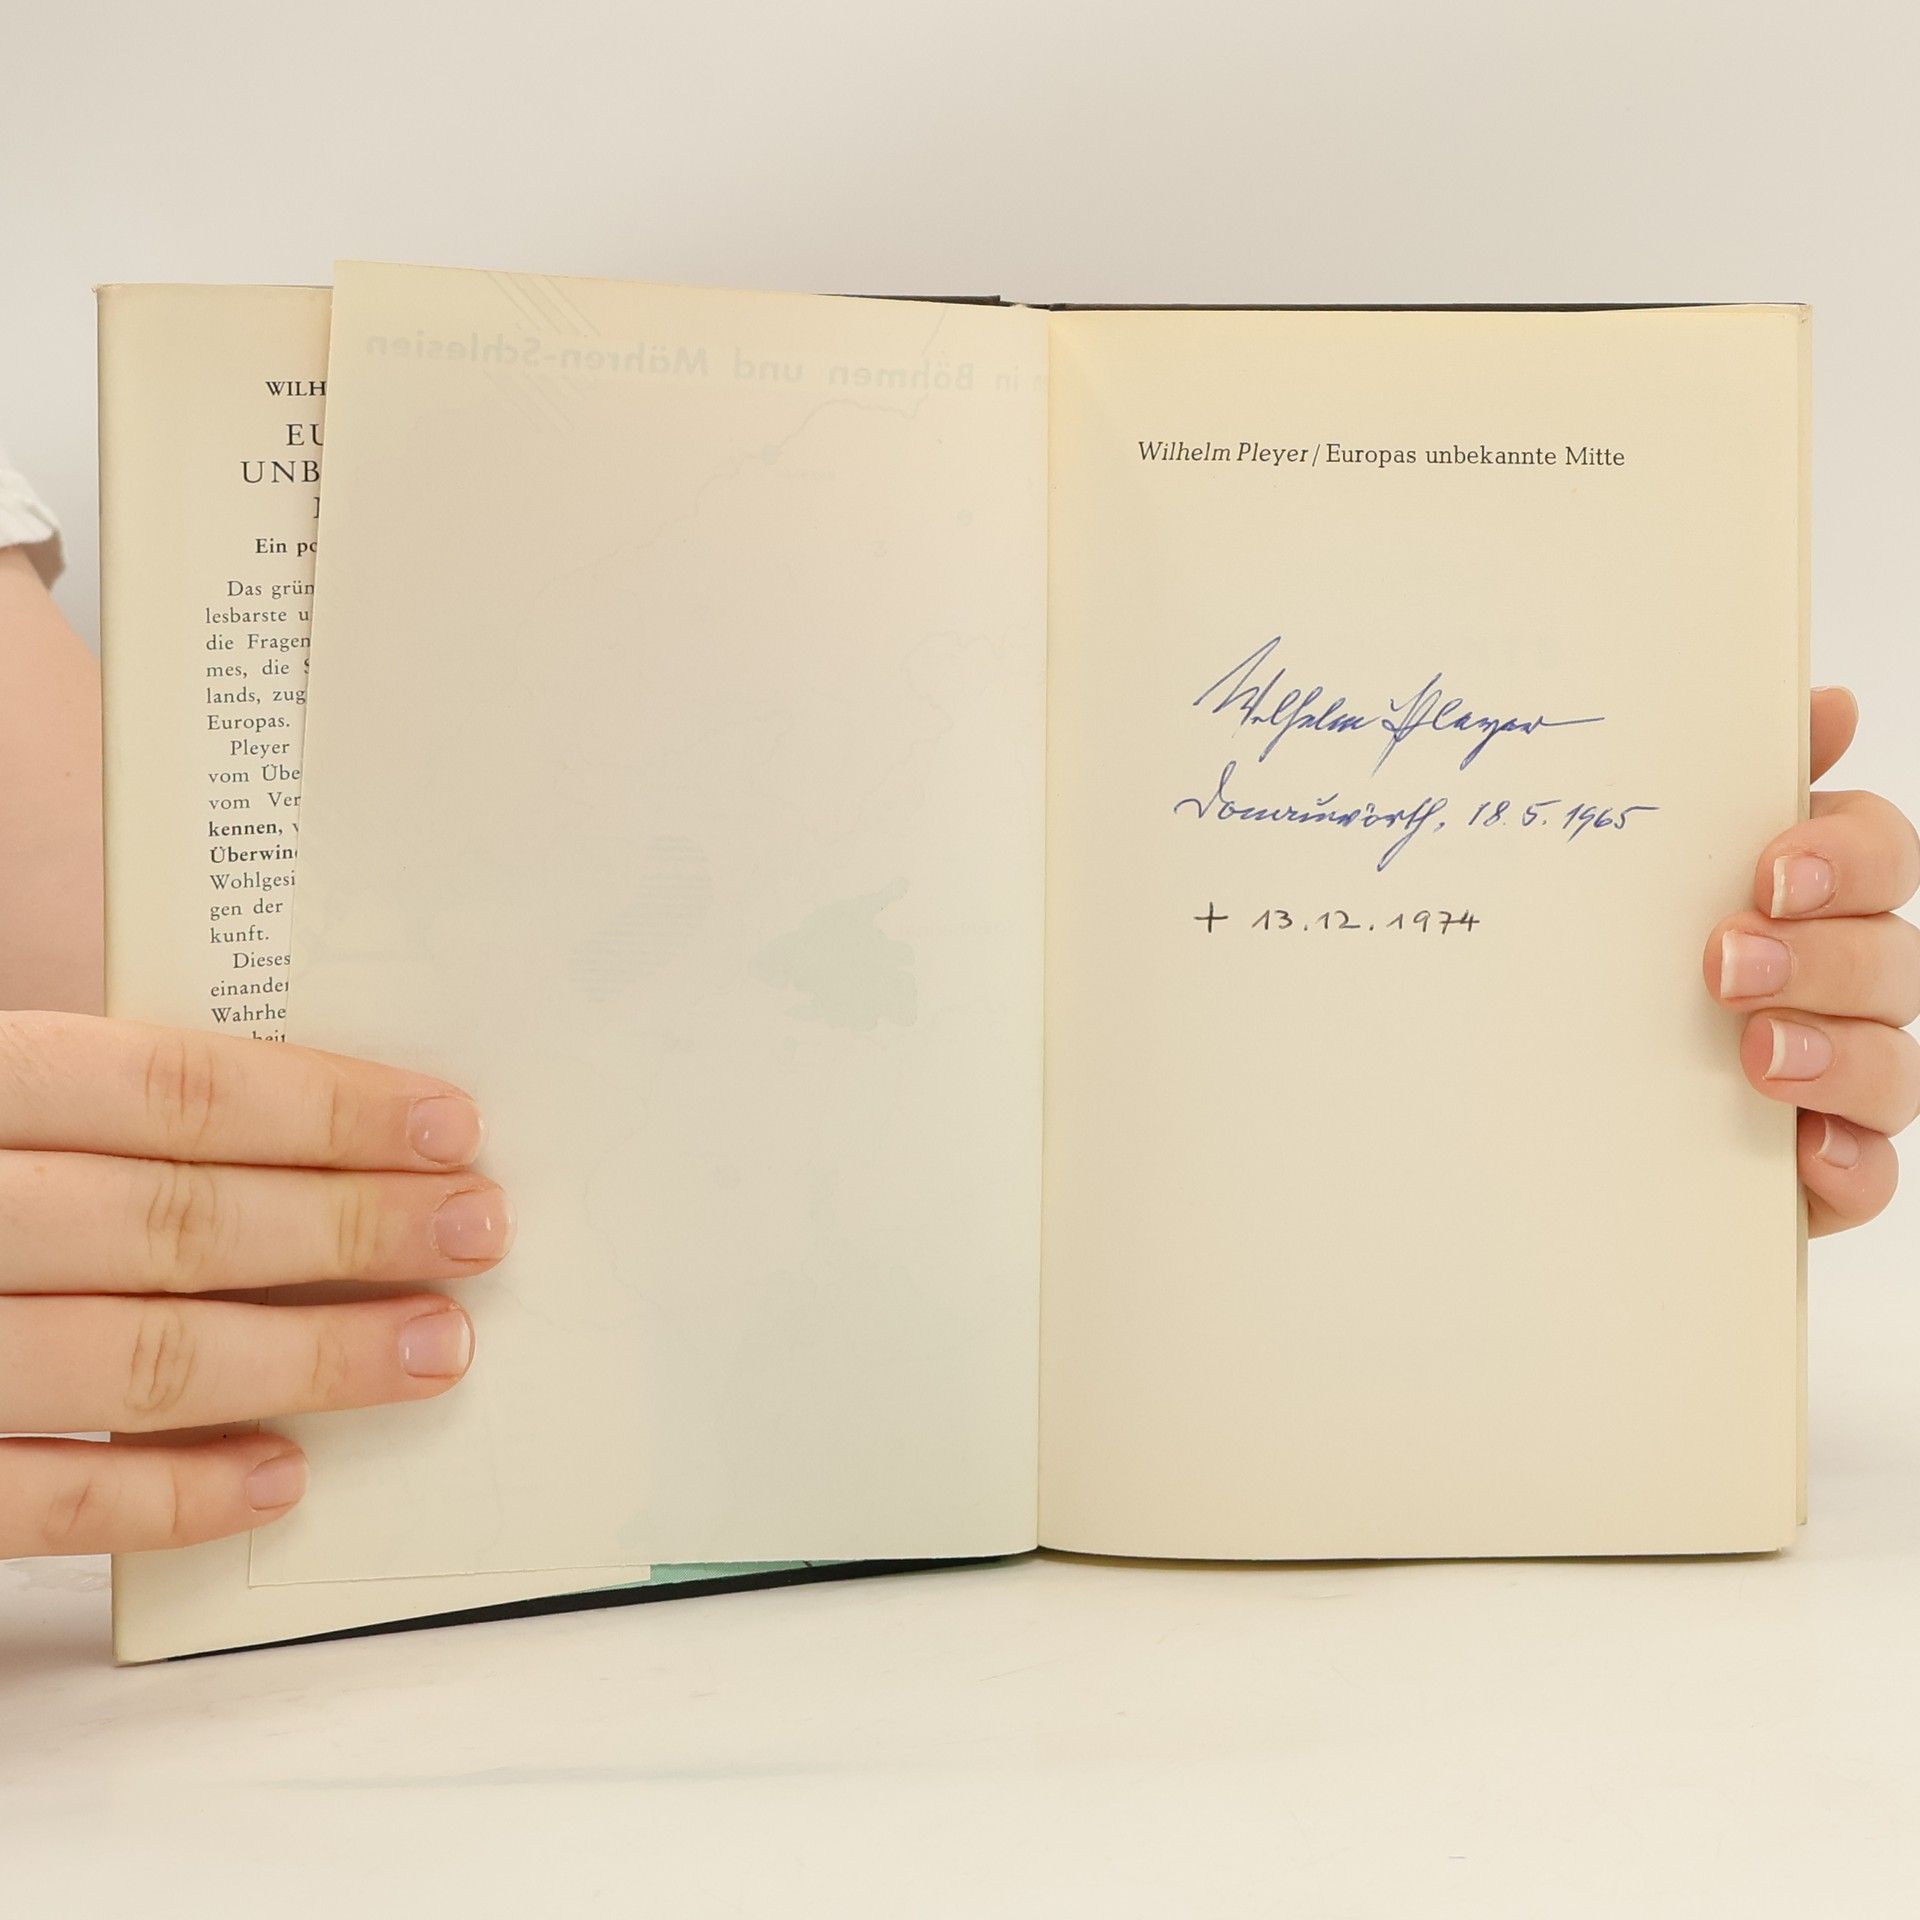 WILH
EU
UNB
Ein po
Das grün
lesbarste u
die Fragen
mes, die S
lands, zug
Europas.
Pleyer
vom Übe
vom Ver
kennen, v
Überwin
Wohlgesi
gen der
kunft.
Dieses
einander
Wahrhe
heit
m in Böhmen und Mähren-Schlesien
Wilhelm Pleyer / Europas unbekannte Mitte
Wilhelm Pleyer
Donauwörth, 18.5.1965
+ 13.12.1974